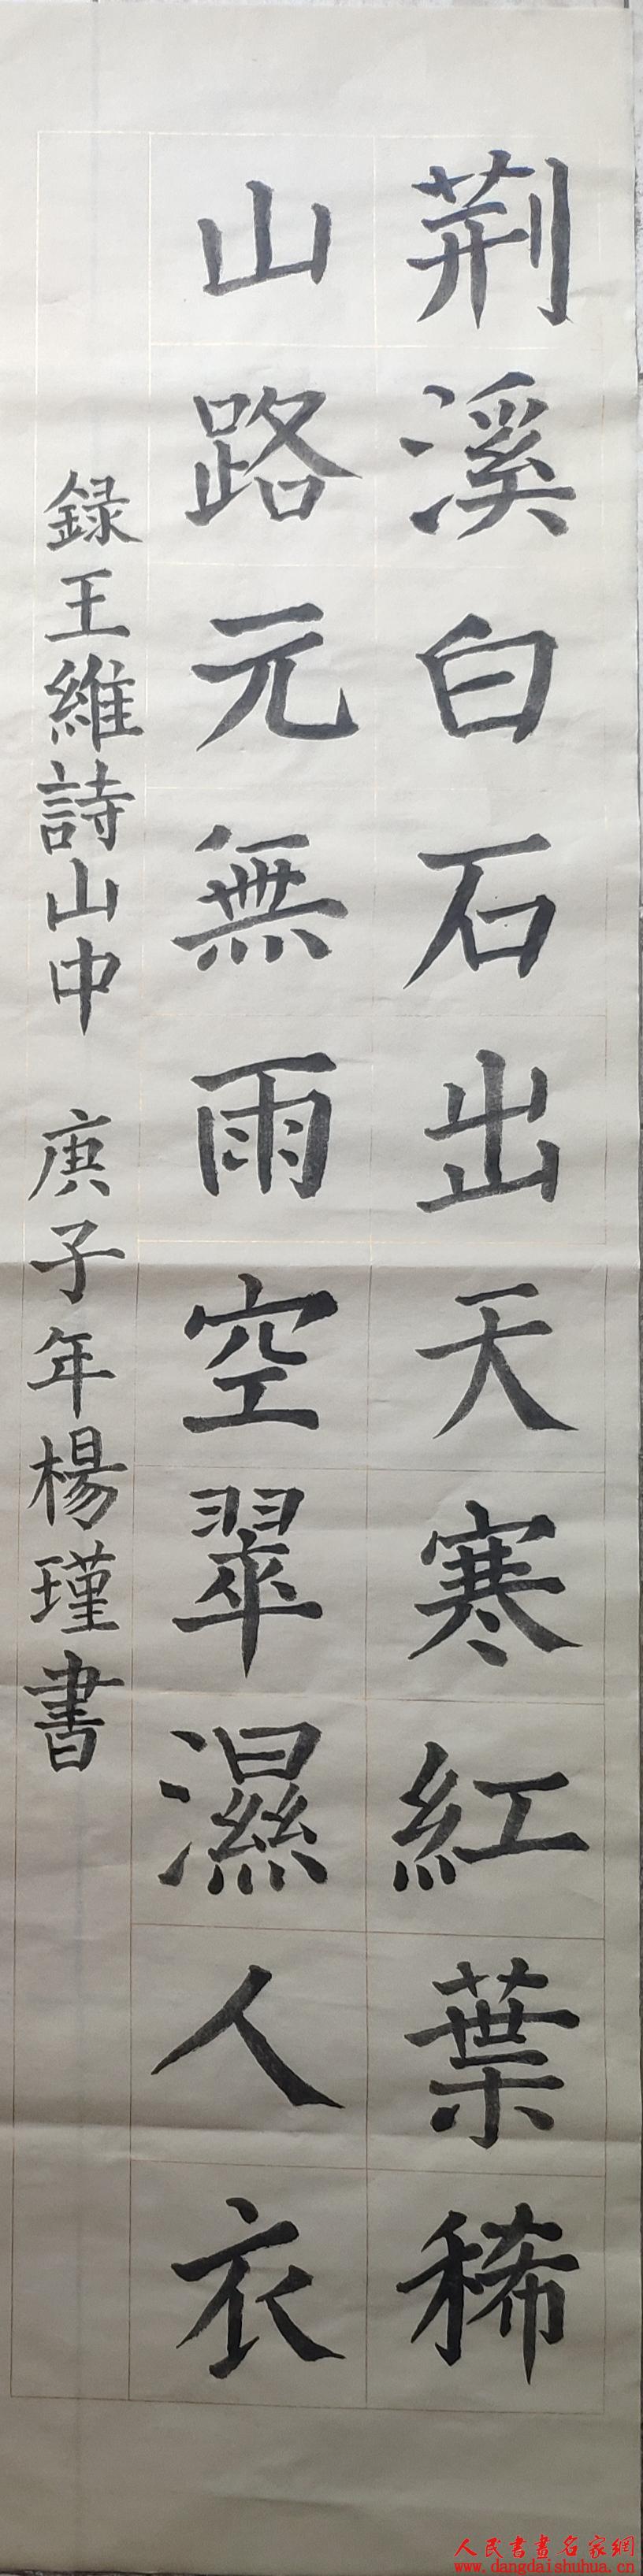 荆溪白石出天寒紅葉稀
山路元無雨空翠濕人衣
録王維詩山中 庚子年楊瑾書
人民書畫名家網
www.dangdaishuhua.com.cn